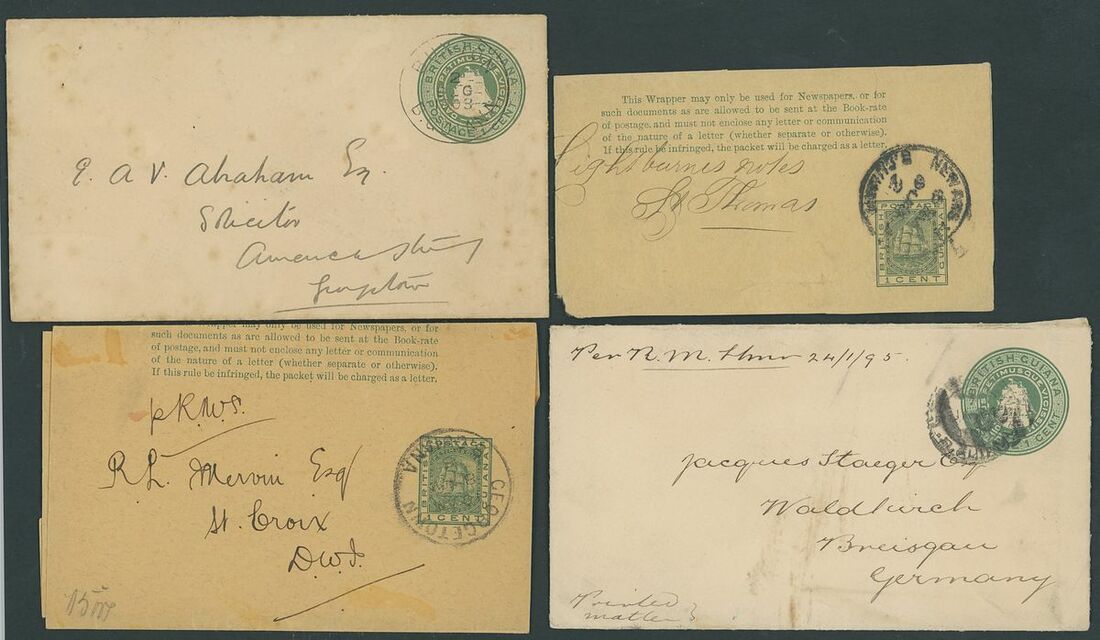 BRITISH GUIANA
POSTAGE 1 CENT
E. A V. Abraham Esq.
Solicitor
America Street
Georgetown
This Wrapper may only be used for Newspapers, or for
such documents as are allowed to be sent at the Book-rate
of postage, and must not enclose any letter or communication
of the nature of a letter (whether separate or otherwise).
If this rule be infringed, the packet will be charged as a letter.
Lightburnes notes
St Thomas
POSTAGE
BRITISH
1 CENT
Wrapper may only be used for Newspapers, or for
such documents as are allowed to be sent at the Book-rate
of postage, and must not enclose any letter or communication
of the nature of a letter (whether separate or otherwise).
If this rule be infringed, the packet will be charged as a letter.
p R.M.S.
R. L. Mervin Esq
St. Croix
D.W.I.
POSTAGE
BRITISH GUIANA
1 CENT
GEORGETOWN
Per R. M. Stmr 24/1/95.
BRITISH GUIANA
1 CENT
Jacques Staeger Esq
Waldkirch
Breisgau
Germany
Printed
matter